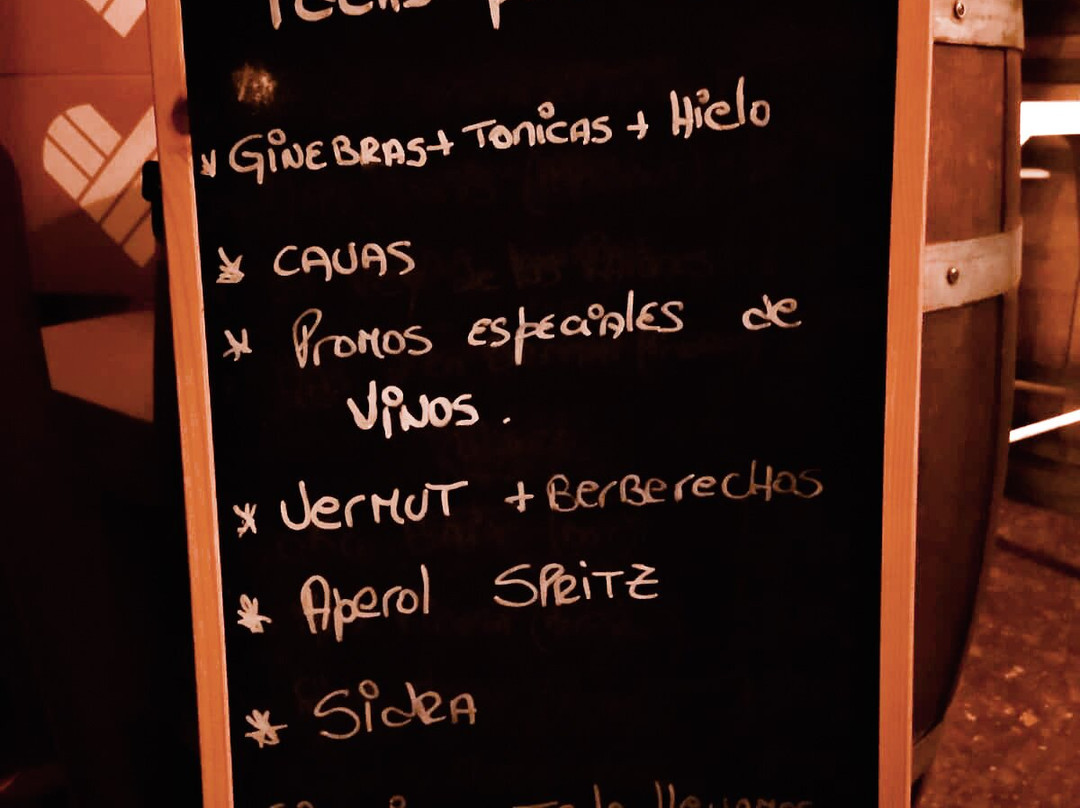 * GINEBRAS + TONICAS + Hielo
* CAVAS
* Promos especiales de
VINOS.
* Vermut + Berberechos
* Aperol SPRITZ
* Sidra